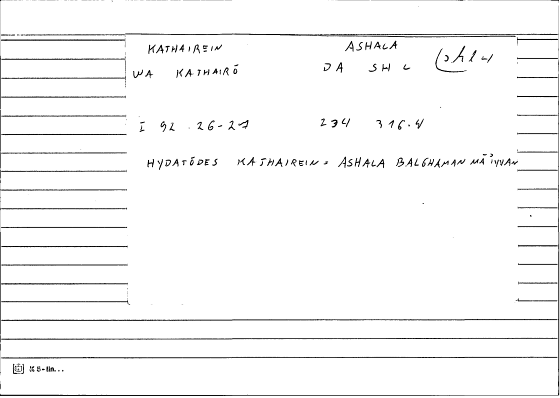 KATHAIREIN ASHALA
WA KATHAIRŌ DA SH L
I 92 26-27 234 316.4
HYDATŌDES KATHAIREIN = ASHALA BALGHAMAN MĀ'IYYAN